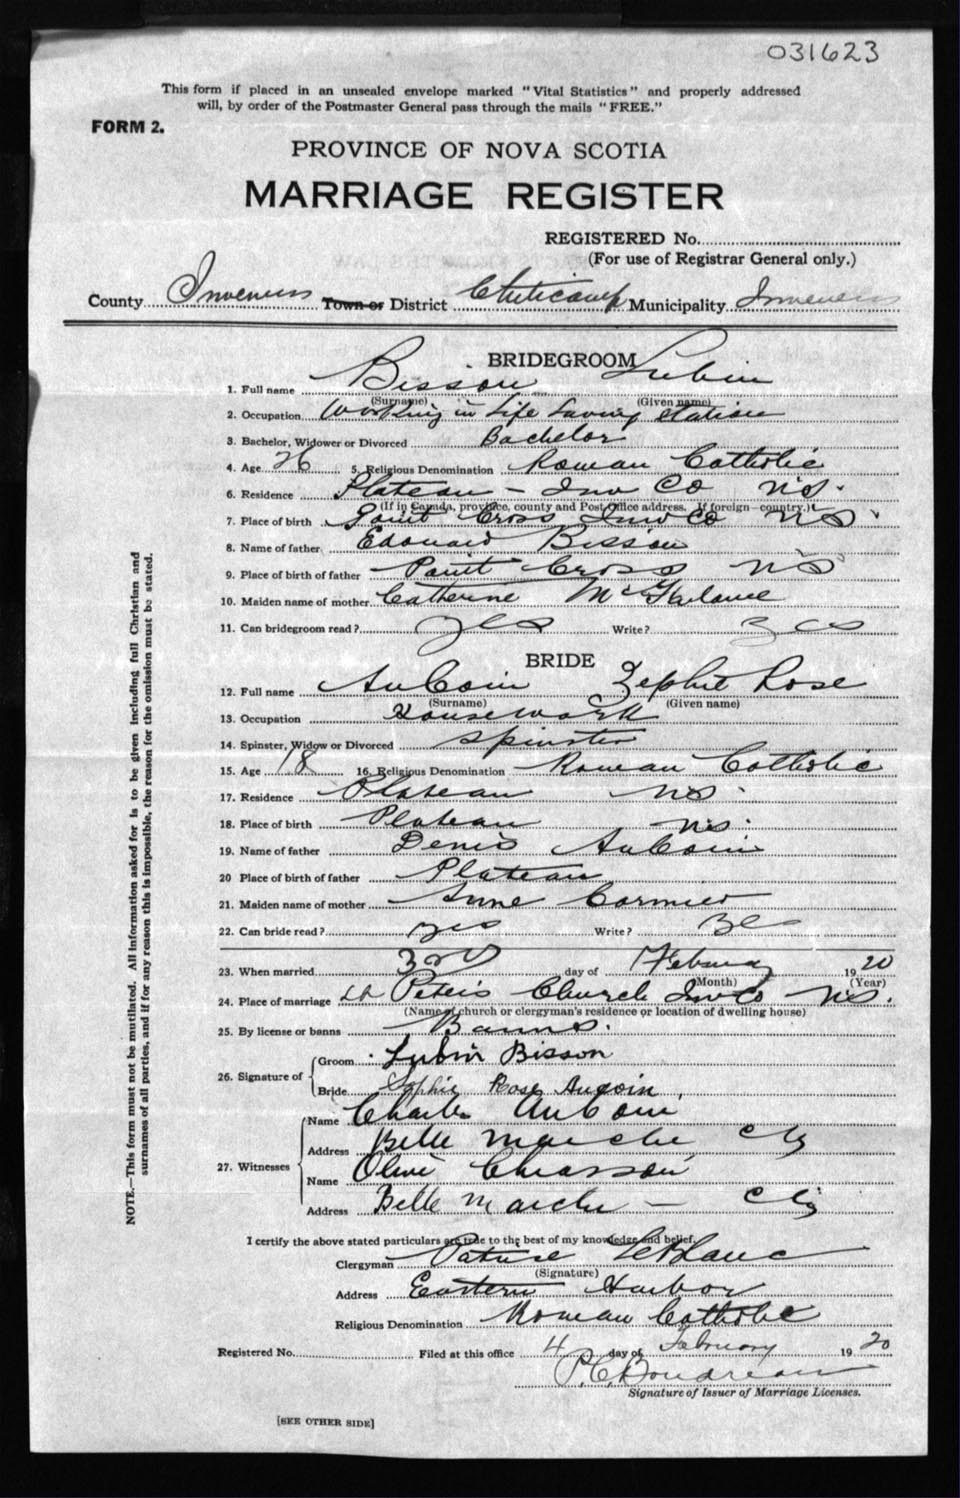 031623
This form if placed in an unsealed envelope marked "Vital Statistics" and properly addressed
will, by order of the Postmaster General pass through the mails "FREE."
FORM 2.
PROVINCE OF NOVA SCOTIA
MARRIAGE REGISTER
REGISTERED No.
(For use of Registrar General only.)
County Inverness Town or District Cheticamp Municipality Inverness
BRIDEGROOM
1. Full name Bisson Lubin
(Surname) (Given name)
2. Occupation Working in Life Saving Station
3. Bachelor, Widower or Divorced Bachelor
4. Age 26 5. Religious Denomination Roman Catholic
6. Residence Plateau - Inv Co N.S.
(If in Canada, province, county and Post Office address. If foreign—country.)
7. Place of birth Point Cross Inv Co N S
8. Name of father Edouard Bisson
9. Place of birth of father Point Cross N S
10. Maiden name of mother Catherine McFarlane
11. Can bridegroom read? yes Write? yes
BRIDE
12. Full name AuCoin Zephie Rose
(Surname) (Given name)
13. Occupation Housework
14. Spinster, Widow or Divorced Spinster
15. Age 18 16. Religious Denomination Roman Catholic
17. Residence Plateau N S
18. Place of birth Plateau N.S.
19. Name of father Denis AuCoin
20 Place of birth of father Plateau
21. Maiden name of mother Anne Cormier
22. Can bride read? yes Write? yes
23. When married 3rd day of February 1920
(Month) (Year)
24. Place of marriage St Peter's Church Inv Co N.S.
(Name of church or clergyman's residence or location of dwelling house)
25. By license or banns Banns.
26. Signature of Groom Lubin Bisson
Bride Sophie Rose Aucoin
27. Witnesses
Name Charles AuCoin
Address Belle Marche
Name Olive Chiasson
Address Belle Marche
I certify the above stated particulars are true to the best of my knowledge and belief.
Clergyman LeBlanc
(Signature)
Address Eastern Harbor
Religious Denomination Roman Catholic
Registered No. Filed at this office 4 day of February 1920
P. C. Boudreau
Signature of Issuer of Marriage Licenses.
[SEE OTHER SIDE]
NOTE.—This form must not be mutilated. All information asked for is to be given including full Christian and
surnames of all parties, and if for any reason this is impossible, the reason for the omission must be stated.